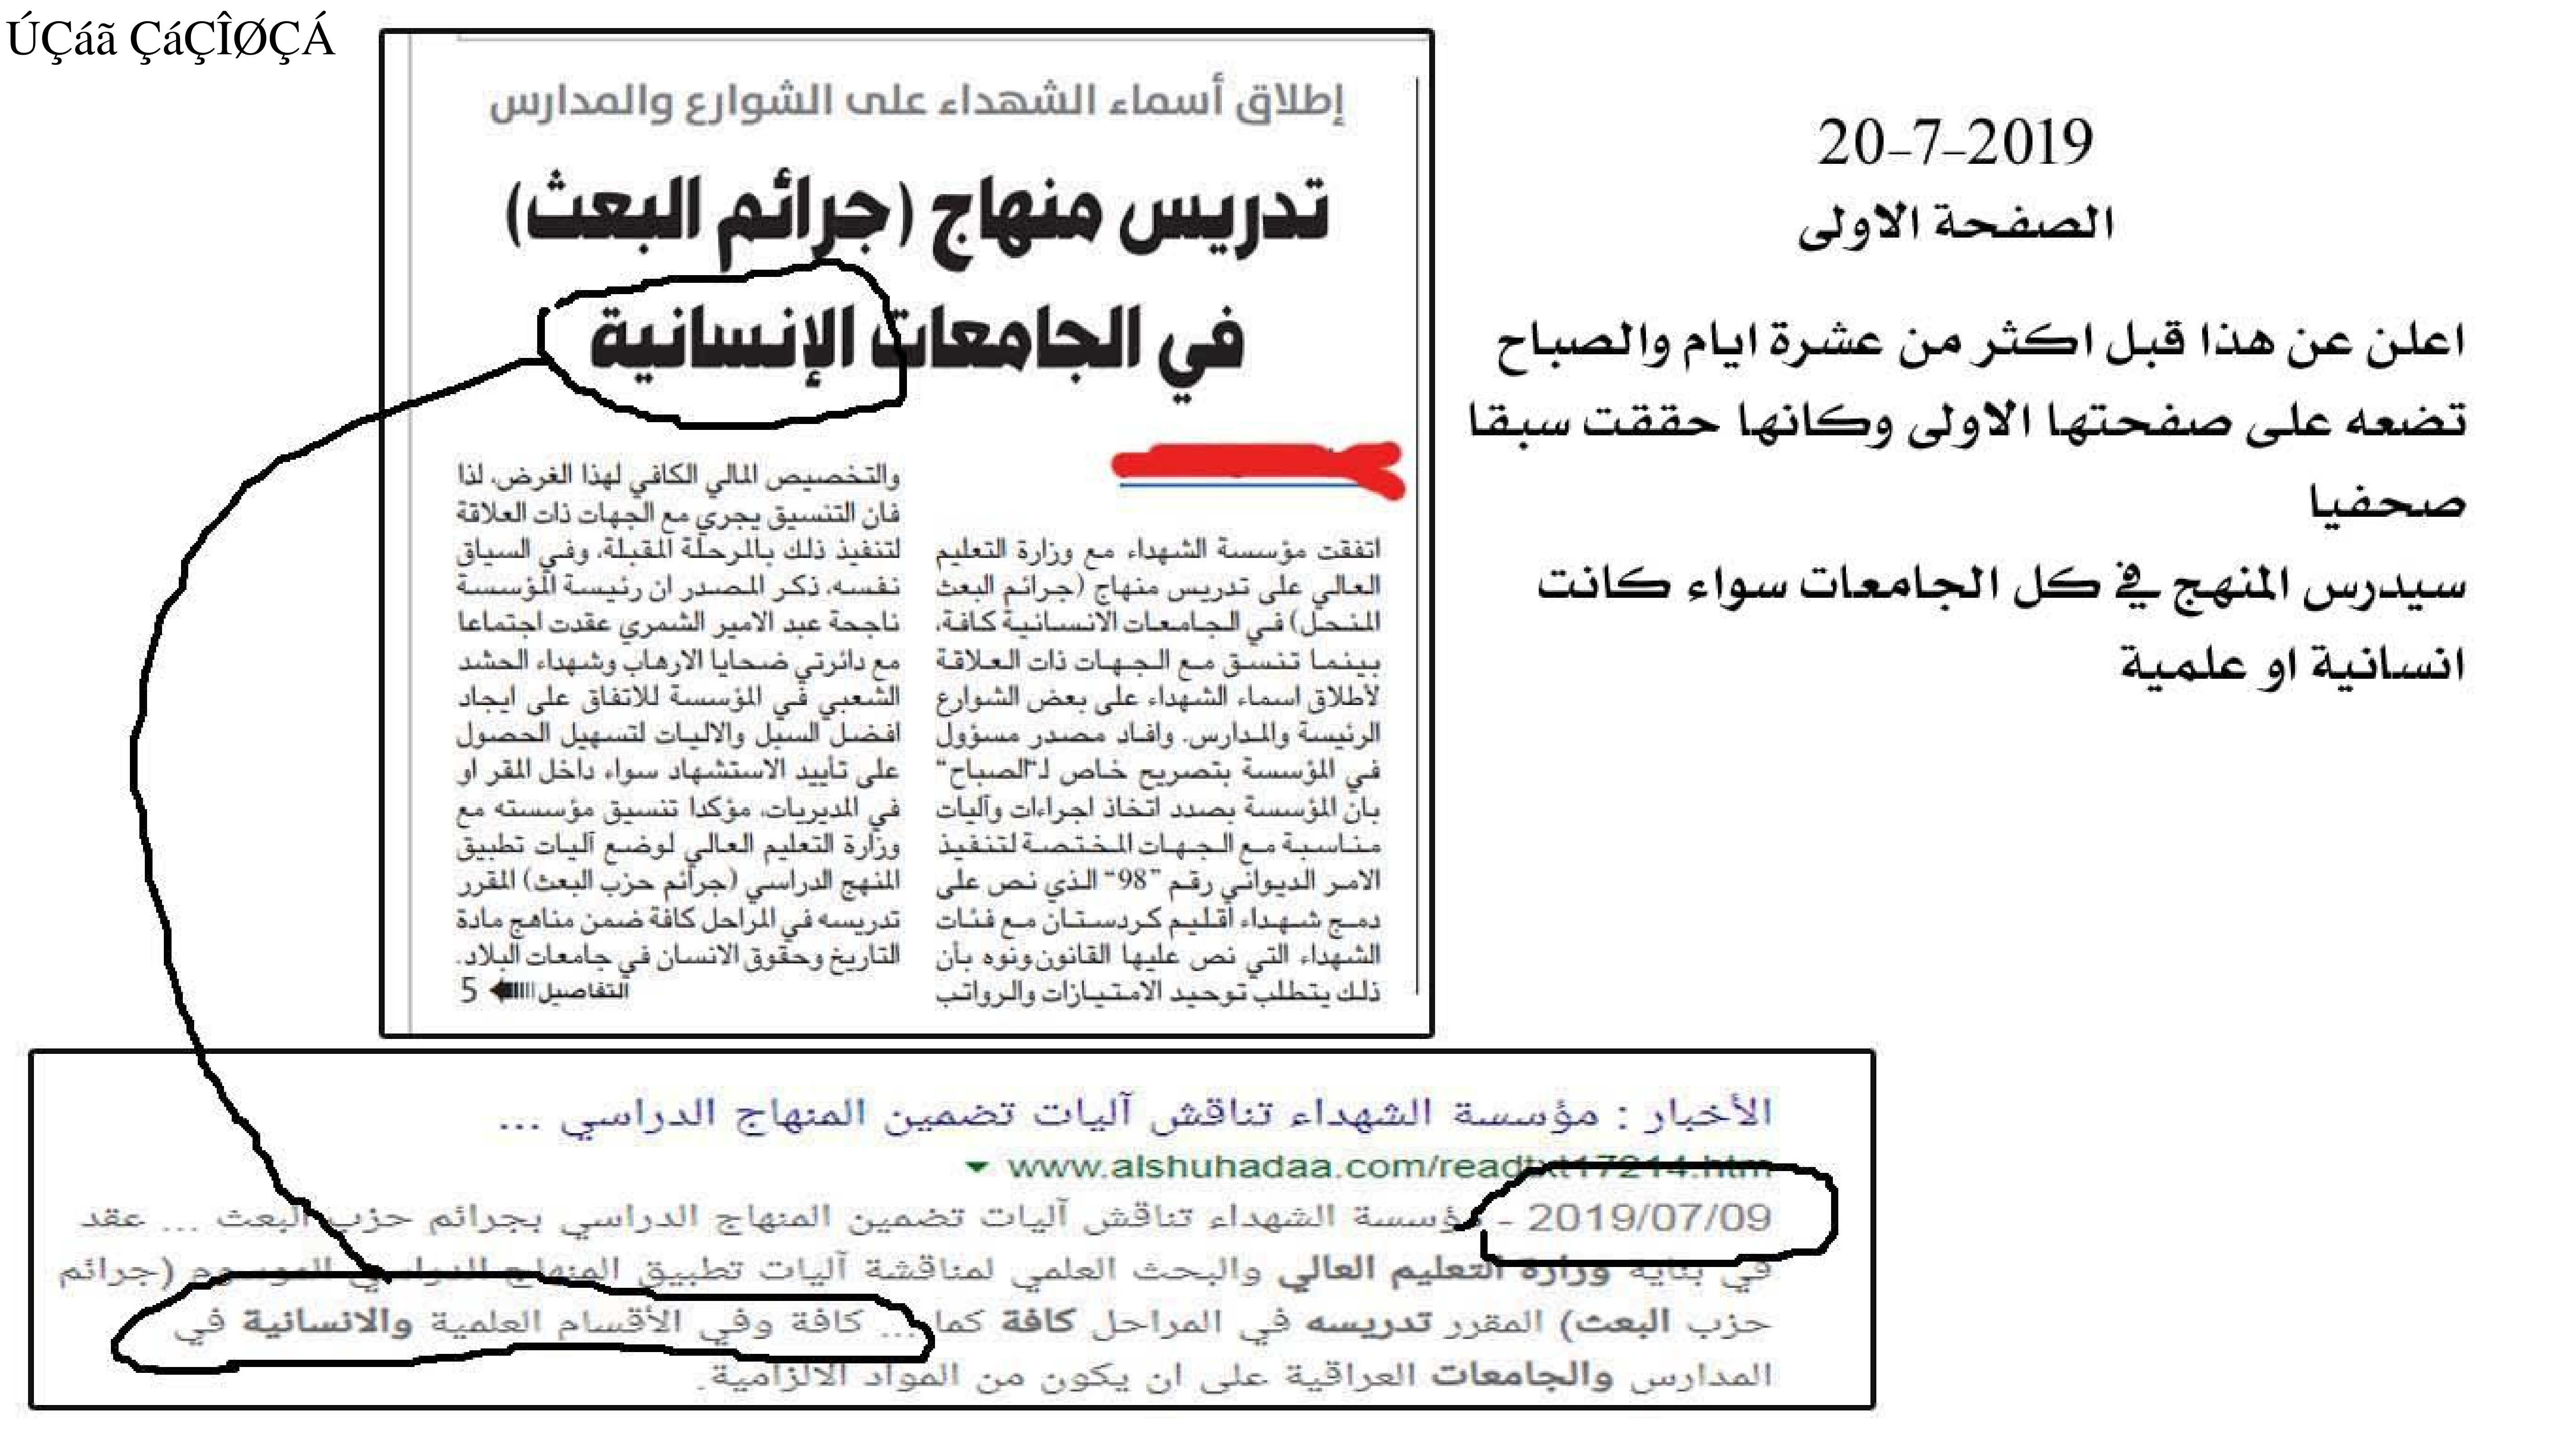 ÚÇáã ÇáÇÎØÇÁ
إطلاق أسماء الشهداء على الشوارع والمدارس
تدريس منهاج (جرائم البعث)
في الجامعات الإنسانية
اتفقت مؤسسة الشهداء مع وزارة التعليم
العالي على تدريس منهاج (جرائم البعث
المنحل) في الجامعات الانسانية كافة،
بينما تنسق مع الجهات ذات العلاقة
لاطلاق اسماء الشهداء على بعض الشوارع
الرئيسة والمدارس. وافاد مصدر مسؤول
في المؤسسة بتصريح خاص لـ"الصباح"
بان المؤسسة بصدد اتخاذ اجراءات وآليات
مناسبة مع الجهات المختصة لتنفيذ
الامر الديواني رقم "98" الذي نص على
دمج شهداء اقليم كردستان مع فئات
الشهداء التي نص عليها القانون ونوه بأن
ذلك يتطلب توحيد الامتيازات والرواتب
والتخصيص المالي الكافي لهذا الغرض، لذا
فان التنسيق يجري مع الجهات ذات العلاقة
لتنفيذ ذلك بالمرحلة المقبلة، وفي السياق
نفسه، ذكر المصدر ان رئيسة المؤسسة
ناجحة عبد الامير الشمري عقدت اجتماعا
مع دائرتي ضحايا الارهاب وشهداء الحشد
الشعبي في المؤسسة للاتفاق على ايجاد
افضل السبل والاليات لتسهيل الحصول
على تأييد الاستشهاد سواء داخل المقر او
في المديريات، مؤكدا تنسيق مؤسسته مع
وزارة التعليم العالي لوضع آليات تطبيق
المنهج الدراسي (جرائم حزب البعث) المقرر
تدريسه في المراحل كافة ضمن مناهج مادة
التاريخ وحقوق الانسان في جامعات البلاد.
التفاصيل 5
20-7-2019
الصفحة الاولى
اعلن عن هذا قبل اكثر من عشرة ايام والصباح
تضعه على صفحتها الاولى وكانها حققت سبقا
صحفيا
سيدرس المنهج في كل الجامعات سواء كانت
انسانية او علمية
الأخبار : مؤسسة الشهداء تناقش آليات تضمين المنهاج الدراسي ...
www.alshuhadaa.com/readtxt17214.htm
2019/07/09 - مؤسسة الشهداء تناقش آليات تضمين المنهاج الدراسي بجرائم حزب البعث ... عقد
في بناية وزارة التعليم العالي والبحث العلمي لمناقشة آليات تطبيق المنهاج الدراسي الموسوم (جرائم
حزب البعث) المقرر تدريسه في المراحل كافة كما ... كافة وفي الأقسام العلمية والانسانية في
المدارس والجامعات العراقية على ان يكون من المواد الالزامية.